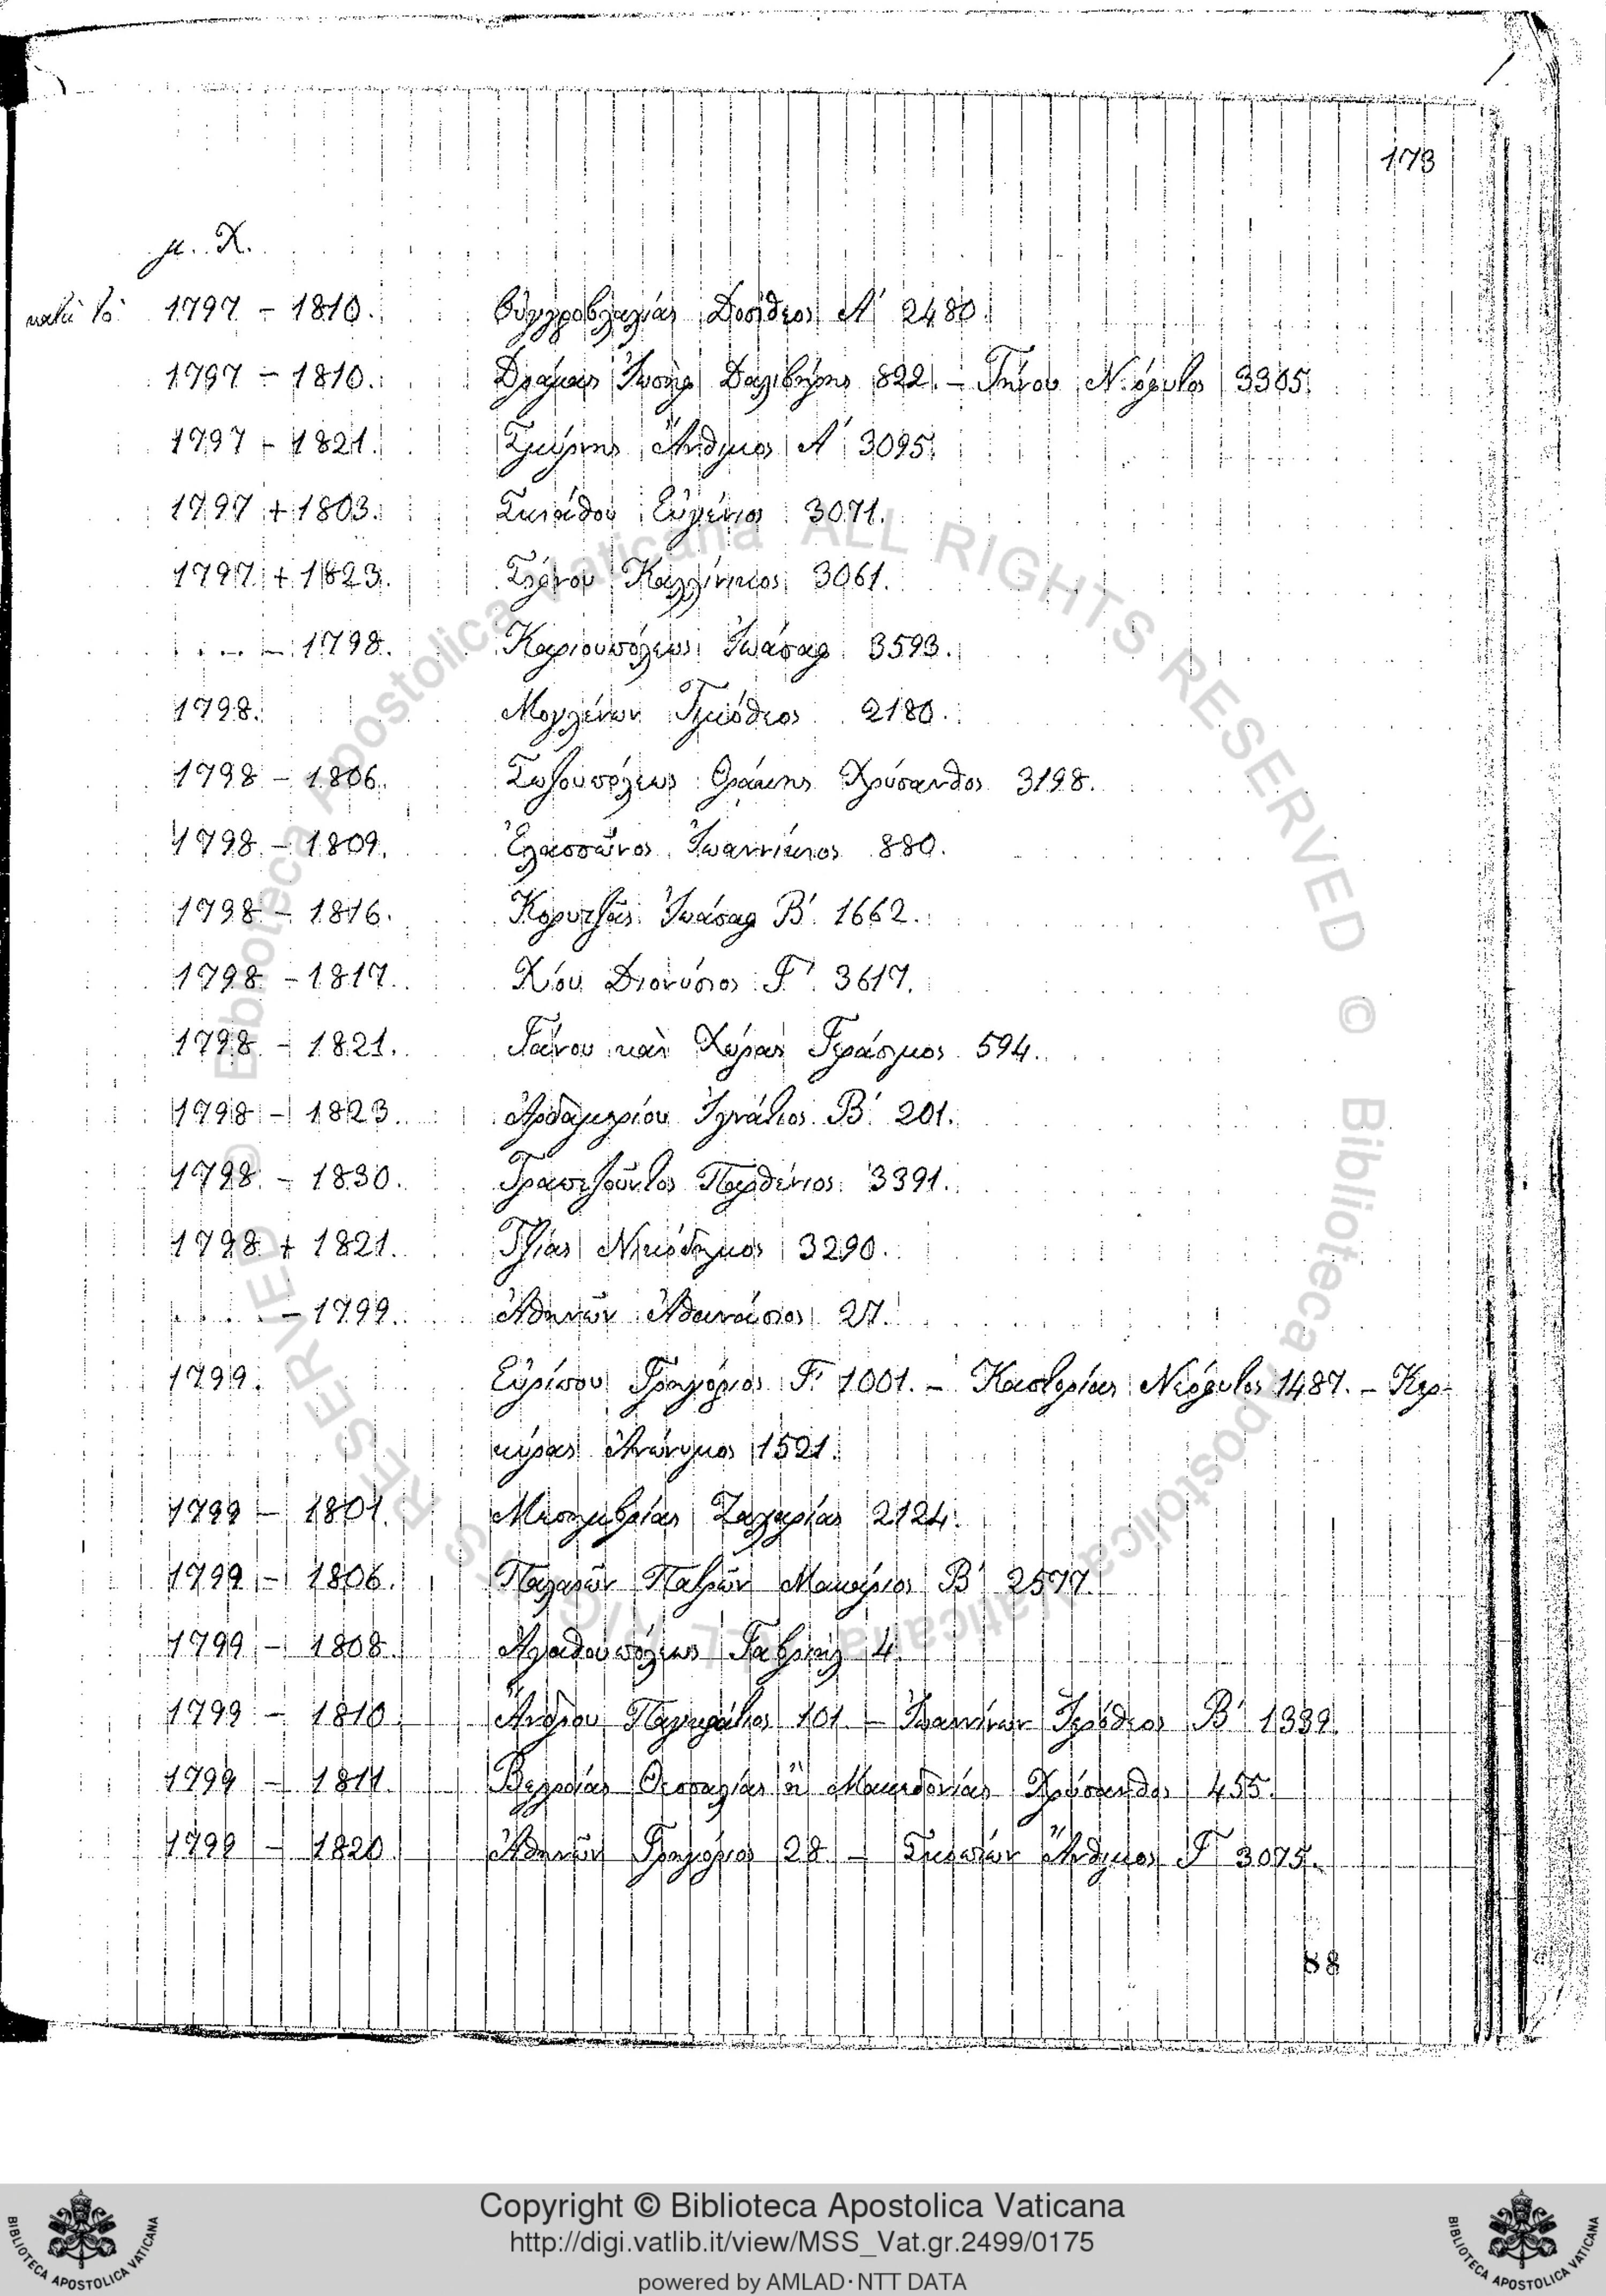 173
μ. Χ.
κατὰ τὸ 1797 – 1810. Οὑγγροβλαχίας Δοσίθεος Α΄ 2480.
1797 – 1810. Δράμας Ἰωσὴφ Δαλιβήρης 822. – Τήνου Νεόφυτος 3365.
1797 – 1821. Σμύρνης Ἄνθιμος Α΄ 3095.
1797 + 1803. Σκιάθου Εὐγένιος 3071.
1797 + 1823. Καλλίνικος 3061.
.... – 1798. Καριουπόλεως Ἰωάσαφ 3593.
1798. Μογλένων Τιμόθεος 2180.
1798 – 1806. Σωζουπόλεως Θράκης Χρύσανθος 3198.
1798 – 1809. Ἐλασσῶνος Ἰωαννίκιος 880.
1798 – 1816. Κορυτζᾶς Ἰωάσαφ Β΄. 1662.
1798 – 1817. Χίου Διονύσιος Γ΄. 3617.
1798 – 1821. Γάνου καὶ Χώρας Γεράσιμος 594.
1798 – 1823. Ἀρδαμερίου Ἰγνάτιος Β΄ 201.
1798 – 1830. Τραπεζοῦντος Παρθένιος 3391.
1798 + 1821. Τζίας Νικόδημος 3290.
.... – 1799. Ἀθηνῶν Ἀθανάσιος 27.
1799. Εὐρίπου Γρηγόριος Γ΄ 1001. – Καστορίας Νεόφυτος 1487. – Κερ-
κύρας Ἀνώνυμος 1521.
1799 – 1801. Μεσημβρίας Ζαχαρίας 2124.
1799 – 1806. Παλαιῶν Πατρῶν Μακάριος Β΄ 2577.
1799 – 1808. Ἀγαθουπόλεως Γαβριὴλ 4.
1799 – 1810. Ἄνδρου 101 – Ἰωαννίνων Ἱερόθεος Β΄ 1339.
1799 – 1811. Βερροίας Θεσσαλίας ἢ Μακεδονίας Χρύσανθος 455.
1799 – 1820. Ἀθηνῶν Γρηγόριος 28 – Σκοπίων Ἄνθιμος Γ΄ 3075.
88
Copyright © Biblioteca Apostolica Vaticana
http://digi.vatlib.it/view/MSS_Vat.gr.2499/0175
powered by AMLAD·NTT DATA